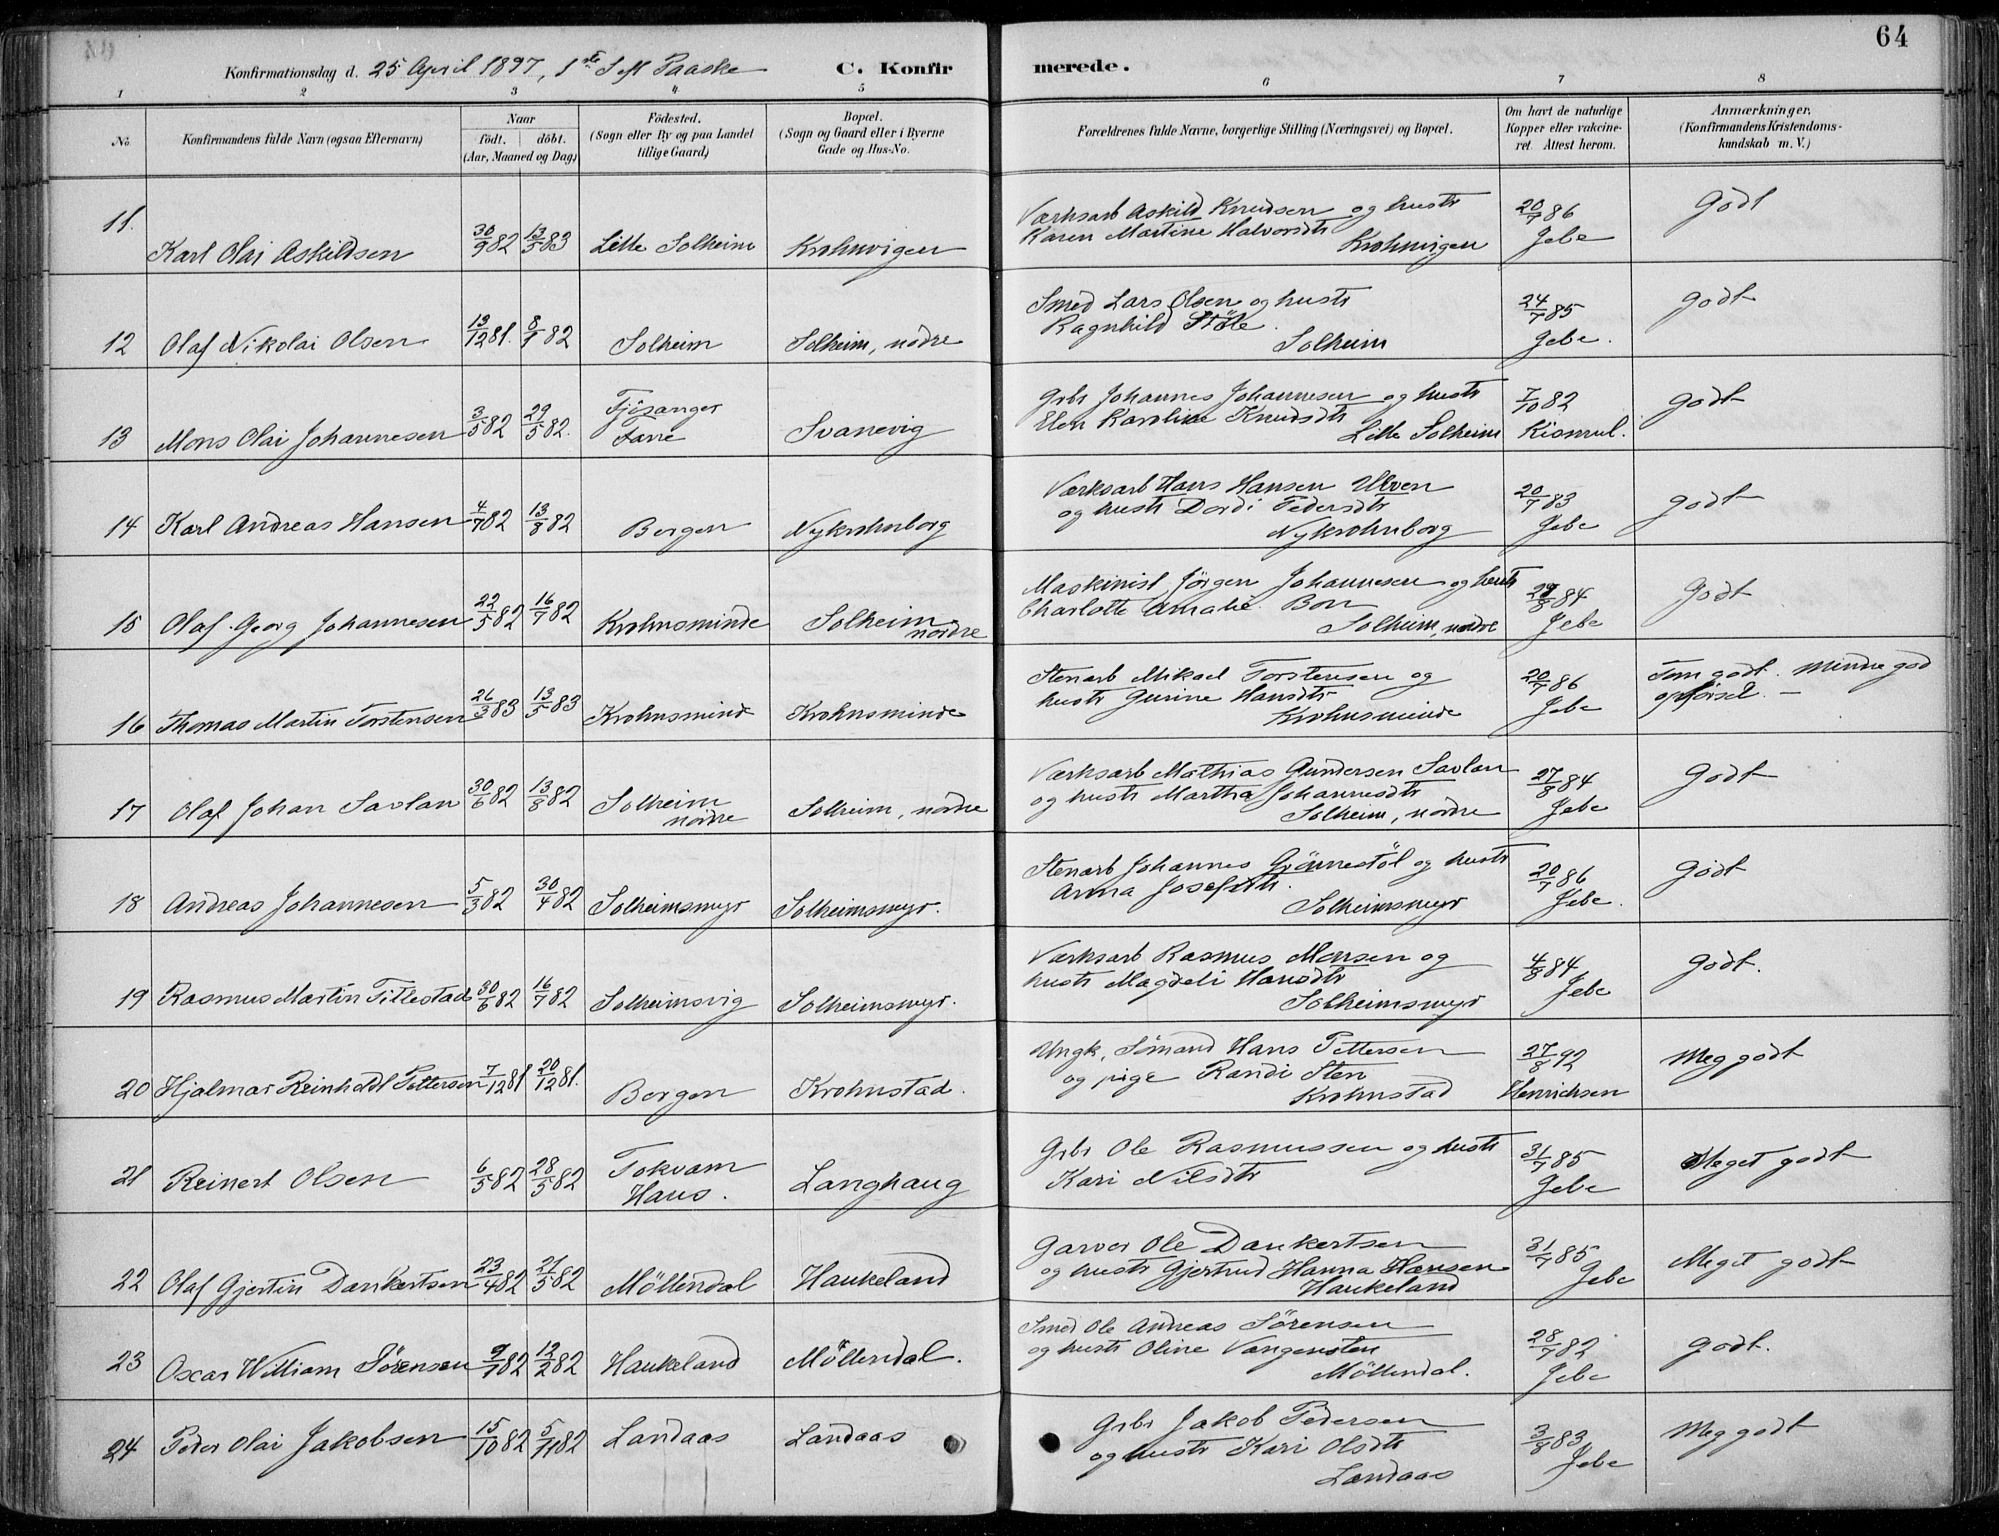 64
Konfirmationsdag d. 25 April 1897, 1ste S M Paaske C. Konfirmerede.
1 2 3 4 5 6 7 8
No Konfirmandens fulde Navn (ogsaa Efternavn) Naar födt. döbt. (Aar, Maaned og Dag) Födested. (Sogn eller By og paa Landet tillige Gaard) Bopæl. (Sogn og Gaard eller i Byerne Gade og Hus-No. Forældrenes fulde Navne, borgerlige Stilling (Næringsvei) og Bopæl. Om havt de naturlige Kopper eller vakcineret. Attest herom. Anmærkninger. (Konfirmandens Kristendomskundskab m. V.)
11. Karl Olai Askildsen 30/9 82 13/5 83 Lille Solheim Krohnvigen
Værksarb Askild Knudsen og hustr
Karen Martine Halvorsdtr
Krohnvigen
20/7 86
Jebe
Godt
12 Olaf Nikolai Olsen 13/12 81. 8/1 82 Solheim Solheim, nordre
Smed Lars Olsen og hustr
Ragnhild Stöle.
Solheim
24/7 85
Jebe.
Godt
13 Mons Olai Johannesen 3/5 82 29/5 82. Fjösanger
Fane
Svanevig
Grbr Johannes Johannesen og hustr
Elen Karoline Knudsdtr
Lille Solheim
7/10 82
Kismul.
Godt
14 Karl Andreas Hansen 4/7 82 13/8 82 Bergen Nykrohnborg
Værksarb Hans Hansen Ulven
og hustr Dordi Pedersdtr
Nykrohnborg
20/7 83
Jebe
Godt
15 Olaf Georg Johannesen 22/5 82 16/7 82 Krohnsminde Solheim
nordre
Maskinist Jörgen Johannesen og hustr
Charlotte Amalie Bon
Solheim, nordre
84
Jebe
Godt
16 Thomas Martin Torstensen 26/3 83 13/5 83 Krohnsminde Krohnsminde
Stenarb Mikael Torstensen og
hustr Gurine Hansdtr
Krohnsminde
20/7 86
Jebe
Tem godt. Mindre god
opförsel. —
17 Olaf Johan Savlan 30/6 82 13/8 82 Solheim
nordre
Solheim, nordre
Værksarb Mathias Gundersen Savlan
og hustr Martha Johannesdtr
Solheim, nordre
27/8 84
Jebe
Godt
18 Andreas Johannesen 5/3 82 30/4 82 Solheimsmyr Solheimsmyr.
Stenarb Johannes Grönnestöl og hustr
Anna Josefsdtr.
Solheimsmyr
20/7 86
Jebe.
Godt
19 Rasmus Martin Tillestad 30/6 82 16/7 82 Solheimsvig Solheimsmyr.
Værksarb Rasmus Monsen og
hustr Magdeli Hansdtr
Solheimsmyr
4/8 84
Jebe
Godt.
20 Hjalmar Reinholdt Pettersen 7/12 81 20/12 81. Bergen Krohnstad.
Ungk, Sömand Hans Pettersen
og pige Randi Sten
Krohnstad
27/8 92
Henrichsen
Meg godt
21 Reinert Olsen 6/5 82 28/5 82 Tokvam
Haus.
Langhaug
Grbr Ole Rasmussen og hustr
Kari Nilsdtr
31/7 85
Jebe
Meget godt
22 Olaf Gjertin Dankertsen 23/4 82 21/5 82 Möllendal Haukeland
Garver Ole Dankertsen
og hustr Gjertrud Hanna Hansen
Haukeland
31/7 85
Jebe
Meget godt
23 Oscar William Sörensen 9/1 82 12/2 82 Haukeland Möllendal.
Smed Ole Andreas Sörensen
og hustr Oline Vangensten
Möllendal.
28/7 82
Jebe
godt.
24 Peder Olai Jakobsen 15/10 82 5/11 82 Landaas Landaas
Grbr Jakob Pedersen
og hustr Kari Olsdtr
Landaas
3/8 83
Jebe
Meg godt